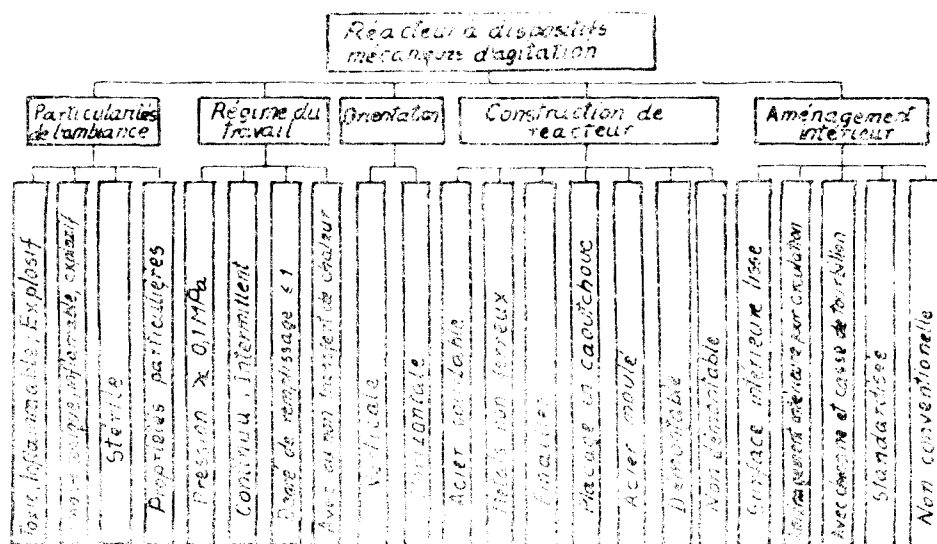 Réacteur à dispositifs
mécaniques d'agitation
Particularités
de l'ambiance
Régime du
Travail
Orientation
Construction de
réacteur
Aménagement
intérieur
Toxic, Inflammable, Explosif
inflammable, explosif
Stérile
Propriétés particulières
Pression ≷ 0,1 MPa
Continuu, Intermittent
Degré de remplissage ≤ 1
Avec ou non transfert de chaleur
Verticale
Horizontale
Acier
Métais non ferreux
Placage en caoutchouc
Acier moulé
Démontable
Non demontable
Surface intérieure lisse
pour circulation
Avec et casse de tourbillon
Standardisé
Non conventionelle